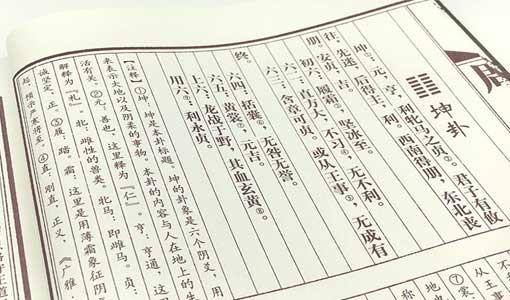 周
坤卦
坤①:元,亨,利牝马之贞②。君子有攸
往,先迷,后得主,利。西南得朋,东北丧
朋。安贞,吉。
初六:履霜③,坚冰至。
六二:直方大,不习④,无不利。
六三:含章可贞。或从王事⑤,无成有
终。
六四:括囊⑥,无咎无誉。
六五:黄裳⑦,元吉。
上六:龙战于野,其血玄黄⑧。
用六⑨:利永贞。
【注释】①坤:坤是本卦标题。坤的卦象是六个阴爻,用
来表示大地以及阴柔的事物。本卦的内容与人在地上的生
活有关。②元:善也,这里释为『仁』。亨:亨通,这里
解释为『礼』。牝:雌性的兽类。牝马:即雌马。贞:
诚坚定,正。③履:踏。霜:这里是用薄霜象征阴
起,预示严寒将至。④直:刚直,正义,《广雅